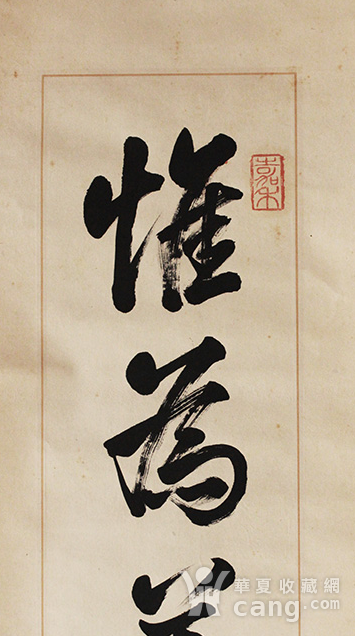 惟為
嘉禾
華夏收藏網
cang.com